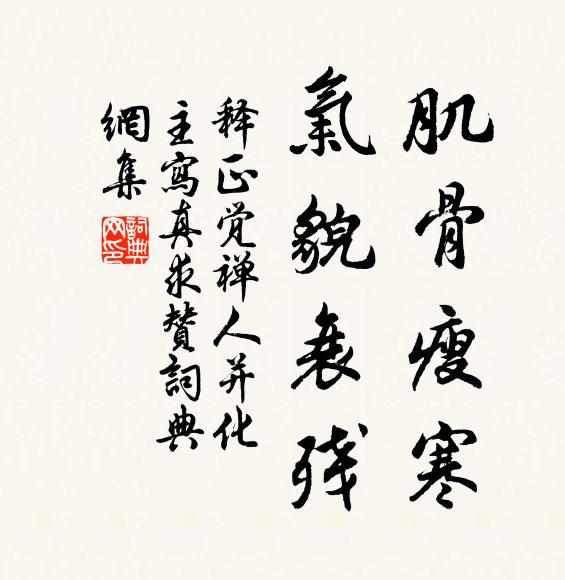 肌骨瘦寒
氣貌衰残
释正觉禅人并化
主寫真求贊詞典
網集
詞典网印